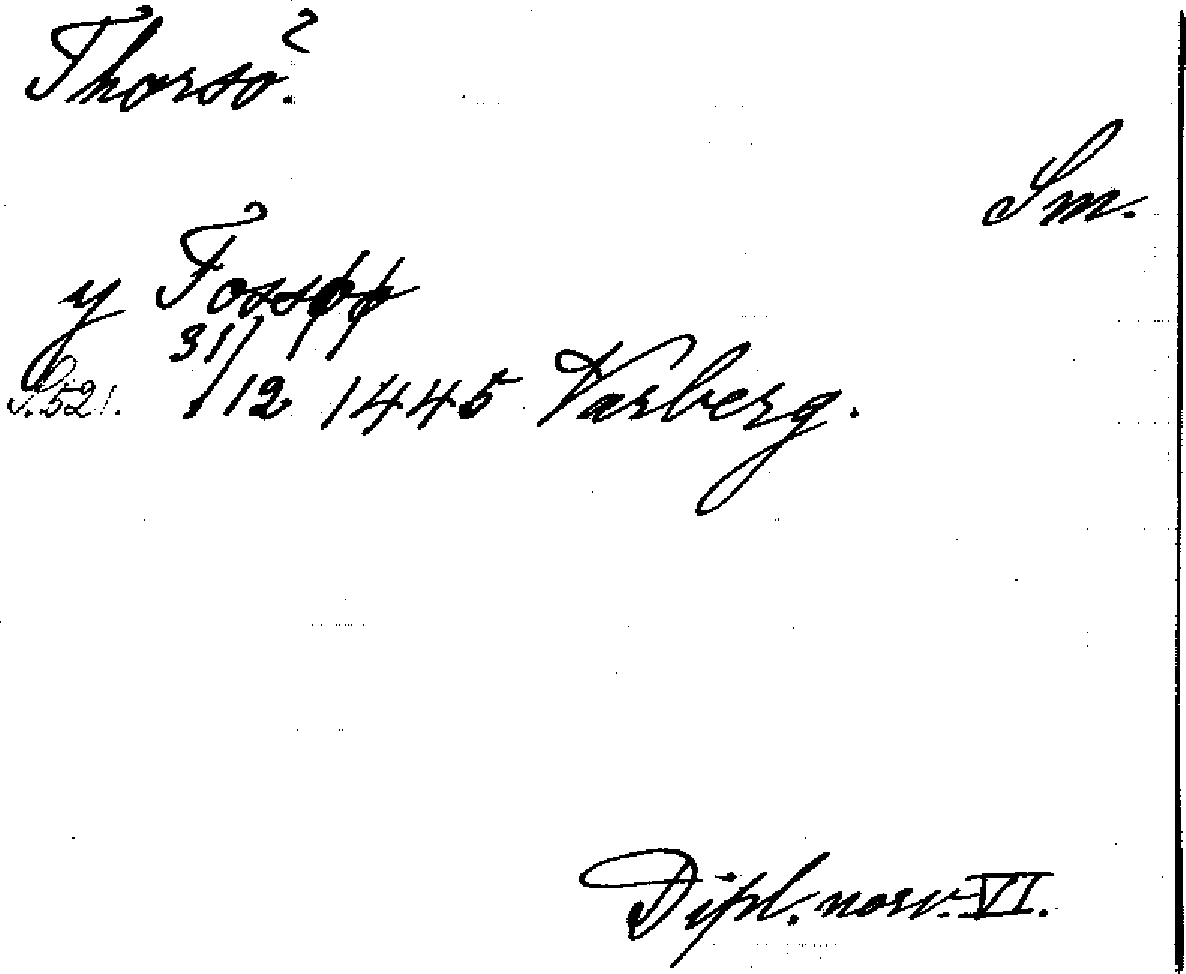 Thorsö?
Sm.
y Fossøø
31/12 1445 Varberg.
S. 521.
Dipl. norv. VI.